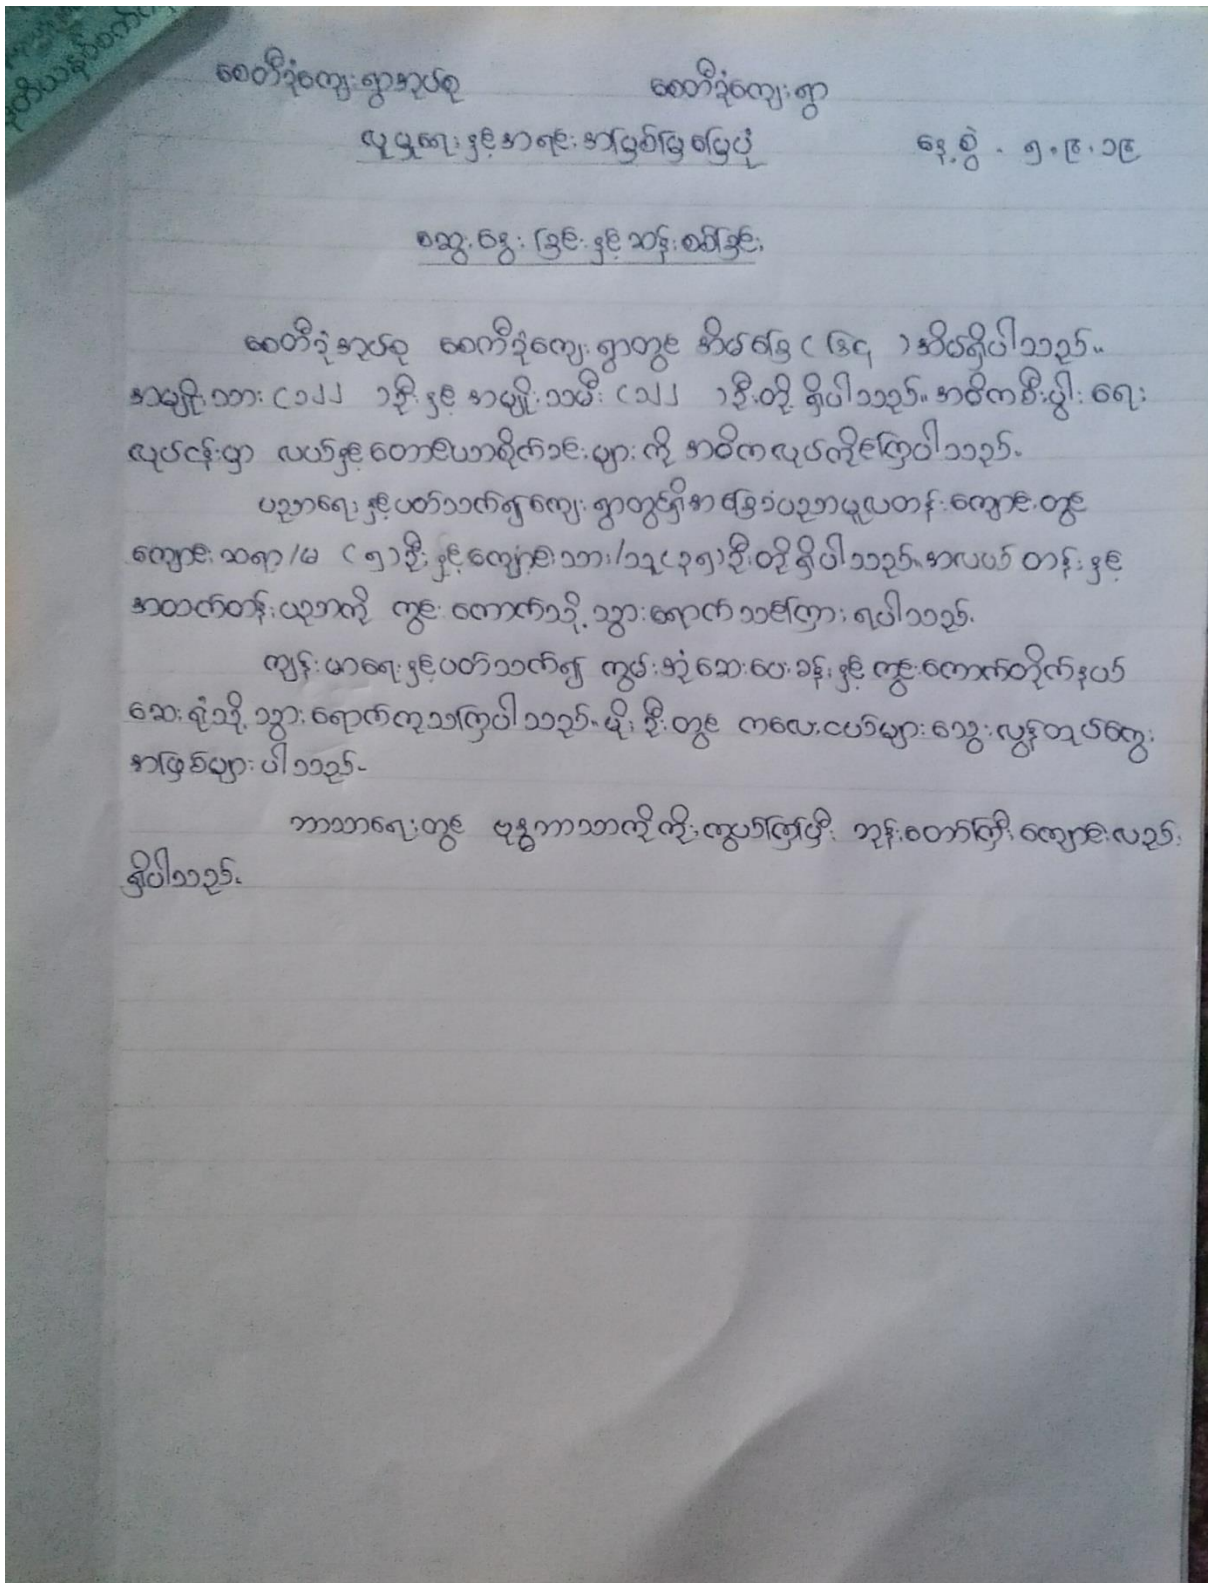 စေတီဒုံကျေးရွာအုပ်စု စေတီဒုံကျေးရွာ
လူမှုရေးနှင့်အရင်းအမြစ်ပြမြေပုံ နေ့စွဲ - ၅.၉.၁၉
ဆွေးနွေးခြင်းနှင့်ဆန်းစစ်ခြင်း
စေတီဒုံအုပ်စု စေတီဒုံကျေးရွာတွင် အိမ်ခြေ ( ၆၄ ) အိမ်ရှိပါသည်။
အမျိုးသား (၁၂၂ ) ဦးနှင့် အမျိုးသမီး (၁၂၂ ) ဦးတို့ ရှိပါသည်။ အဓိကစီးပွါးရေး
လုပ်ငန်းမှာ လယ်နှင့်တောင်ယာစိုက်ခင်းများကို အဓိကလုပ်ကိုင်ကြပါသည်။
ပညာရေးနှင့်ပတ်သက်၍ကျေးရွာတွင်ရှိအခြေခံပညာမူလတန်းကျောင်းတွင်
ကျောင်းဆရာ/မ ( ၅ ) ဦးနှင့်ကျောင်းသား/သူ ( ၃၅ ) ဦးတို့ရှိပါသည်။ အလယ်တန်းနှင့်
အထက်တန်းပညာကို ကွင်းကောက်သို့ သွားရောက်သင်ကြားရပါသည်။
ကျန်းမာရေးနှင့်ပတ်သက်၍ ကွမ်းအုံဆေးပေးခန်းနှင့် ကွင်းကောက်တိုက်နယ်
ဆေးရုံသို့ သွားရောက်ကုသကြပါသည်။ မိုးဦးတွင် ကလေးငယ်များသွေးလွန်တုပ်ကွေး
အဖြစ်များပါသည်။
ဘာသာရေးတွင် ဗုဒ္ဓဘာသာကိုကိုးကွယ်ကြပြီး ဘုန်းတော်ကြီးကျောင်းလည်း
ရှိပါသည်။